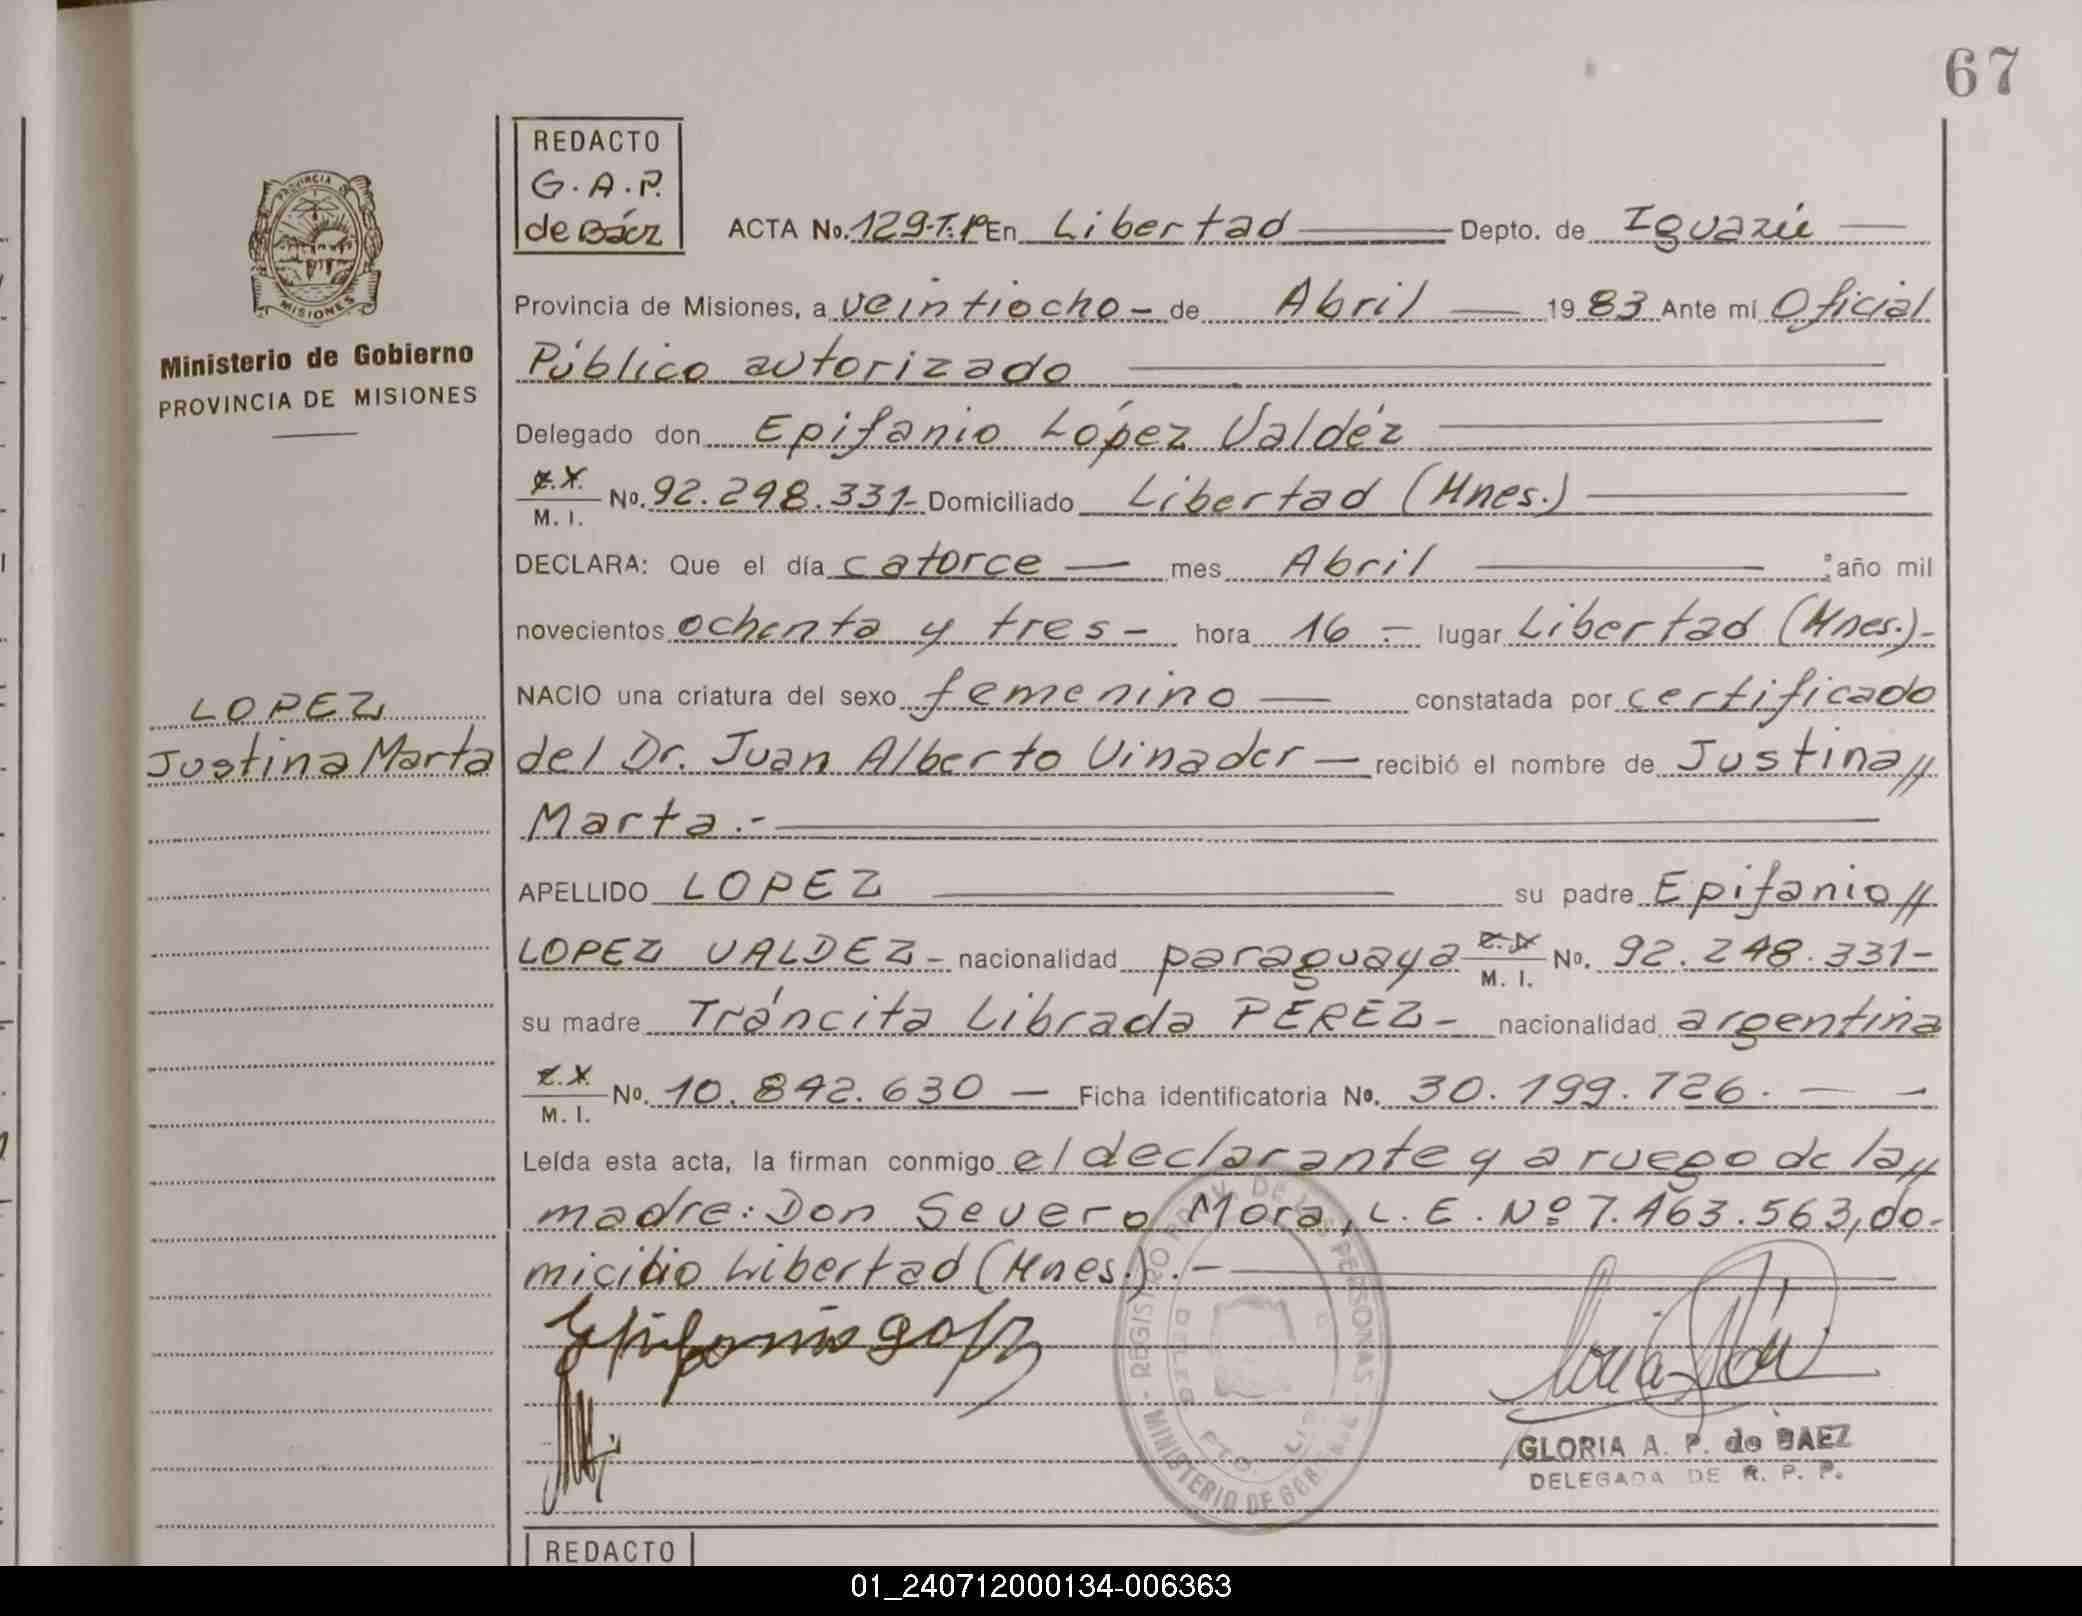 67
REDACTO
G.A.P.
de Báez
ACTA No. 129-T.1º En Libertad Depto. de Iguazú
Provincia de Misiones, a veintiocho - de Abril 1983 Ante mí Oficial
Público autorizado
Delegado don Epifanio López Valdéz
C.I. M. I. No. 92.248.331- Domiciliado Libertad (Mnes.)
DECLARA: Que el día catorce mes Abril año mil
novecientos ochenta y tres - hora 16 - lugar Libertad (Mnes.)-
NACIO una criatura del sexo femenino constatada por certificado
del Dr. Juan Alberto Vinader recibió el nombre de Justina//
Marta.-
APELLIDO LOPEZ su padre Epifanio//
LOPEZ VALDEZ - nacionalidad paraguaya C.I. M. I. No. 92.248.331-
su madre Tráncita Librada PÉREZ - nacionalidad argentina
C.I. M. I. No. 10.842.630 Ficha identificatoria No. 30.199.726.
Leída esta acta, la firman conmigo el declarante y a ruego de la//
madre: Don Severo Mora, L.E. Nº 7.463.563, do-
micilio Libertad (Mnes.).-
GLORIA A. P. de BAEZ
DELEGADA DE R. P. P.
REGISTRO PROV. DE LAS PERSONAS
MINISTERIO DE
PROVINCIA DE
MISIONES
Ministerio de Gobierno
PROVINCIA DE MISIONES
LOPEZ
Justina Marta
REDACTO
01_240712000134-006363